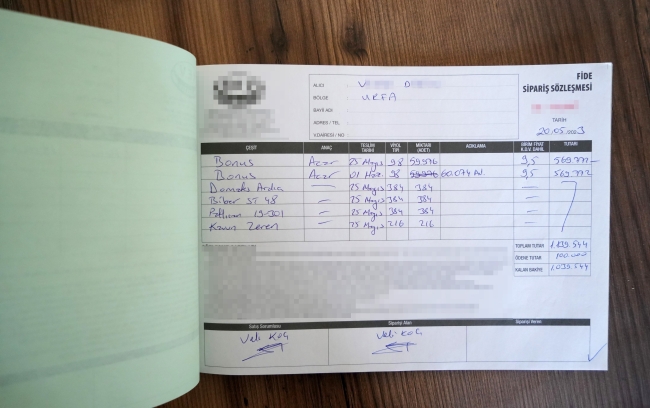 FİDE
SİPARİŞ SÖZLEŞMESİ
ALICI V D
BÖLGE URFA
BAYİ ADI
ADRES / TEL
V.DAİRESİ / NO
TARİH
20.05.2023
ÇEŞİT ANAÇ TESLİM TARİHİ VİYOL TİPİ MİKTARI (ADET) AÇIKLAMA BİRİM FİYAT K.D.V. DAHİL TUTARI
Bonus Acar 25 Mayıs 98 59.976 9,5 569.772
Bonus Acar 01 Haz. 98 59.976 60.074 Ad. 9,5 569.772
Domates Ardia — 25 Mayıs 384 384 —
Biber ST 48 — 25 Mayıs 384 384 —
Patlıcan 19-301 — 25 Mayıs 384 384 —
Kavun Zeren — 25 Mayıs 216 216 —
TOPLAM TUTAR 1.139.544
ÖDENE TUTAR 100.000
KALAN BAKİYE 1.039.544
Satış Sorumlusu Siparişi Alan Siparişi Veren
Veli KOÇ Veli KOÇ